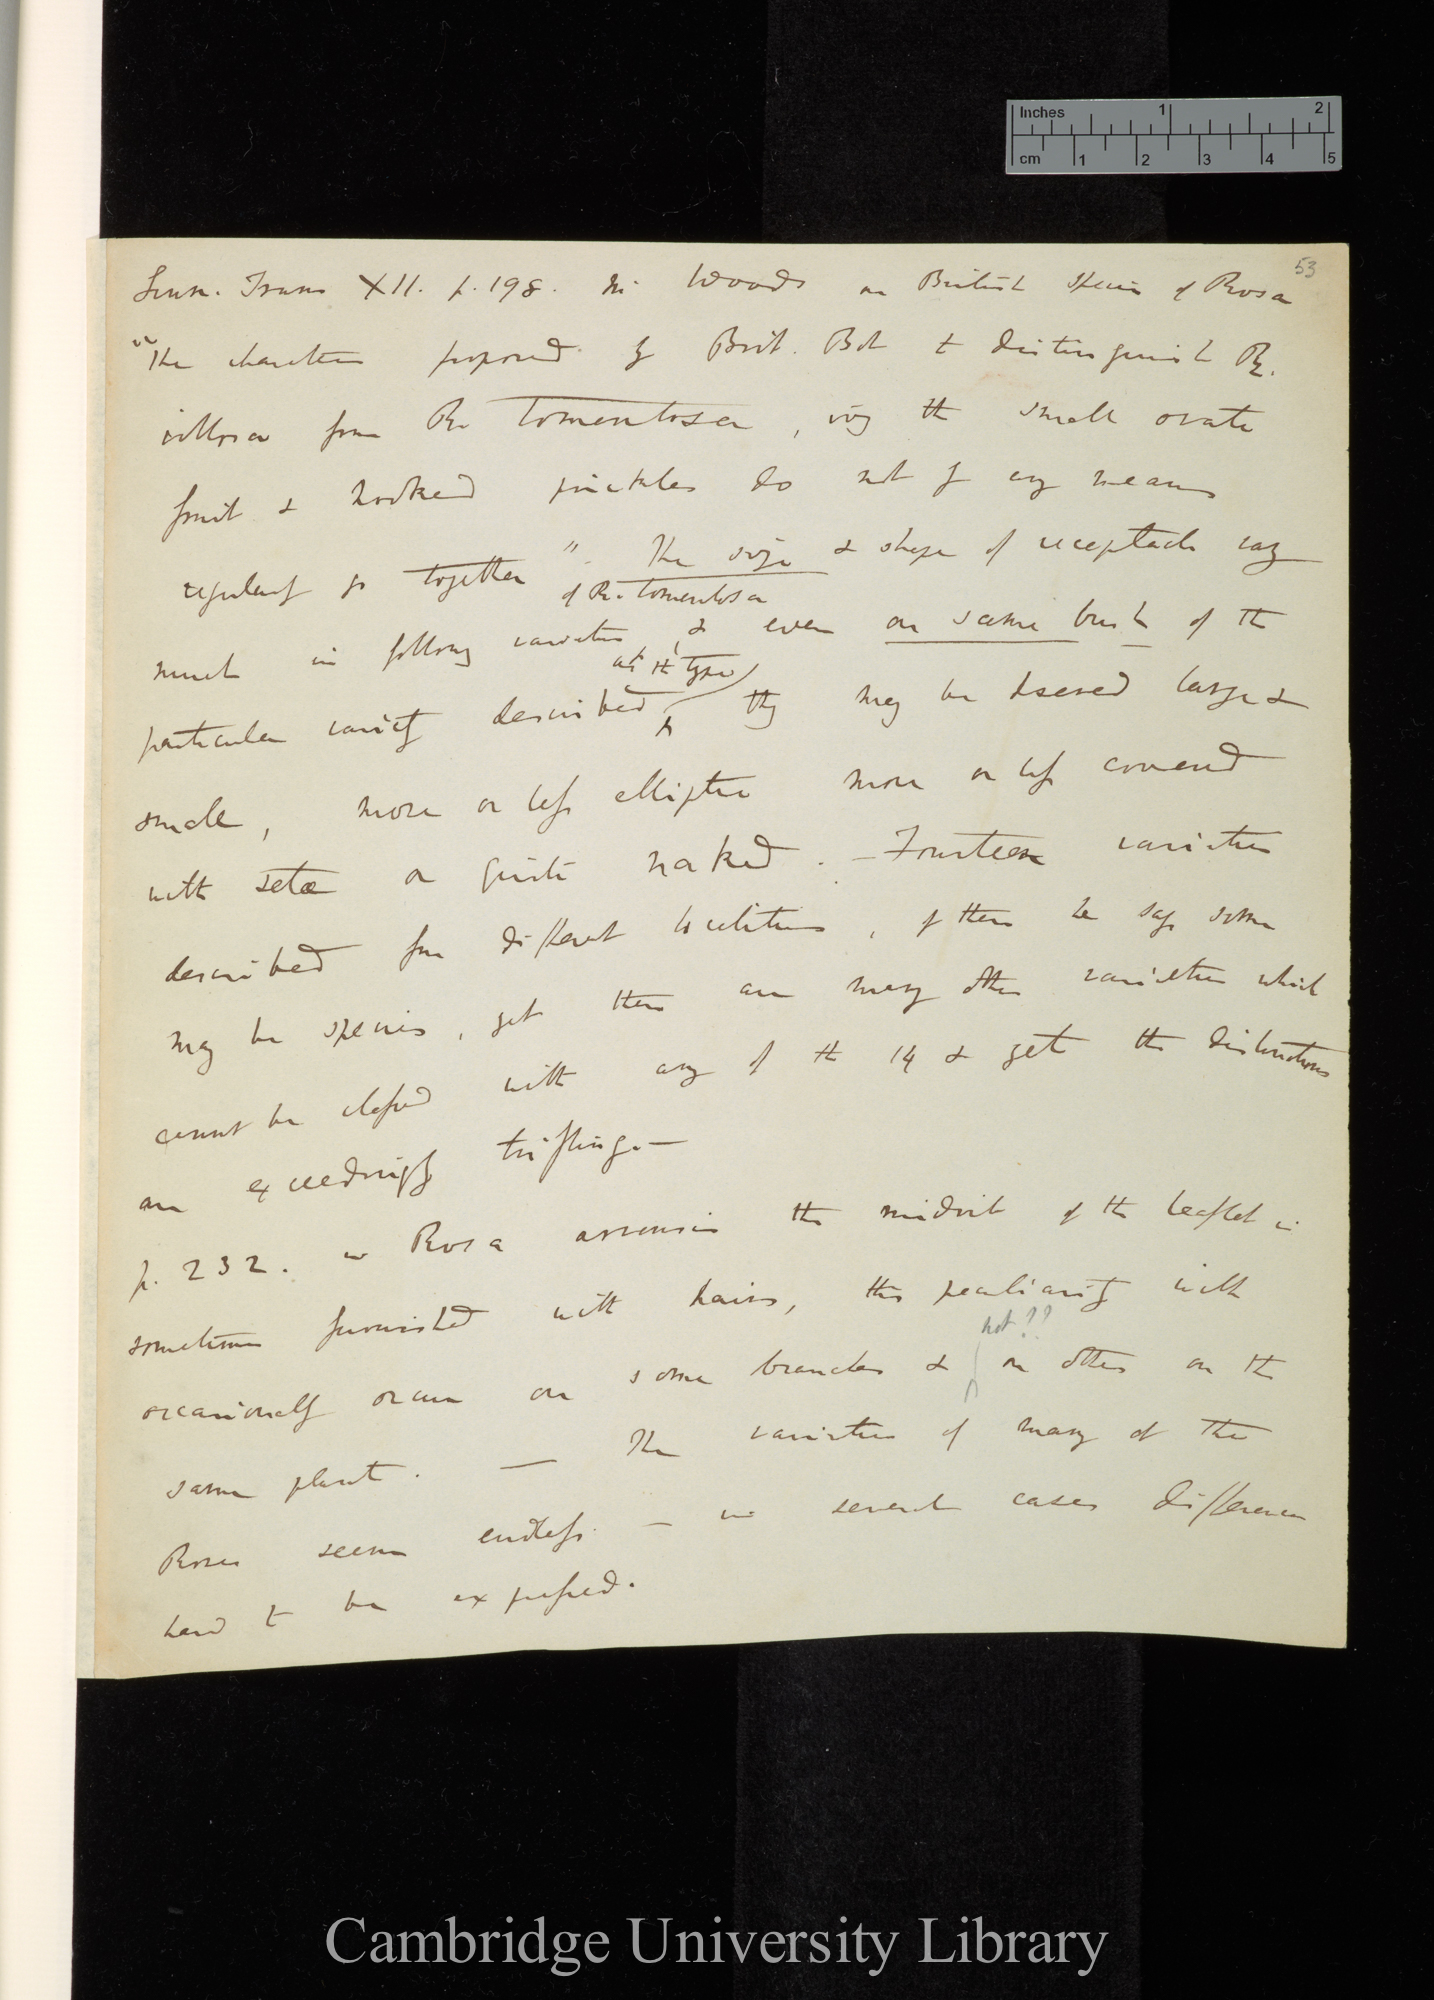 Inches 1 2
cm 1 2 3 4 5
53
Linn. Trans XII. p. 198. Mr Woods on British Species of Rosa
"The characters proposed by Brit. Bot to distinguish R.
villosa from R. tomentosa, viz the small ovate
fruit & hooked prickles do not by any means
regularly go together". The size & shape of receptacle vary
of R. tomentosa
much in following varieties & even on same bush of the
as the type
particular variety described they may be large &
small, more or less elliptic more or less covered
with setæ or quite naked. — Fourteen varieties
described from different localities, of them he says some
may be species, yet there are many other varieties which
cannot be classed with any of the 14 & yet the distinctions
are exceedingly trifling. —
p. 232. in Rosa arvensis the midrib of the leaflet is
sometimes furnished with hairs, this peculiarity will
not??
occasionally occur on some branches & on others on the
same plant. — The varieties of many of the
Roses seem endless. — in several cases difference
hard to be expressed.
Cambridge University Library